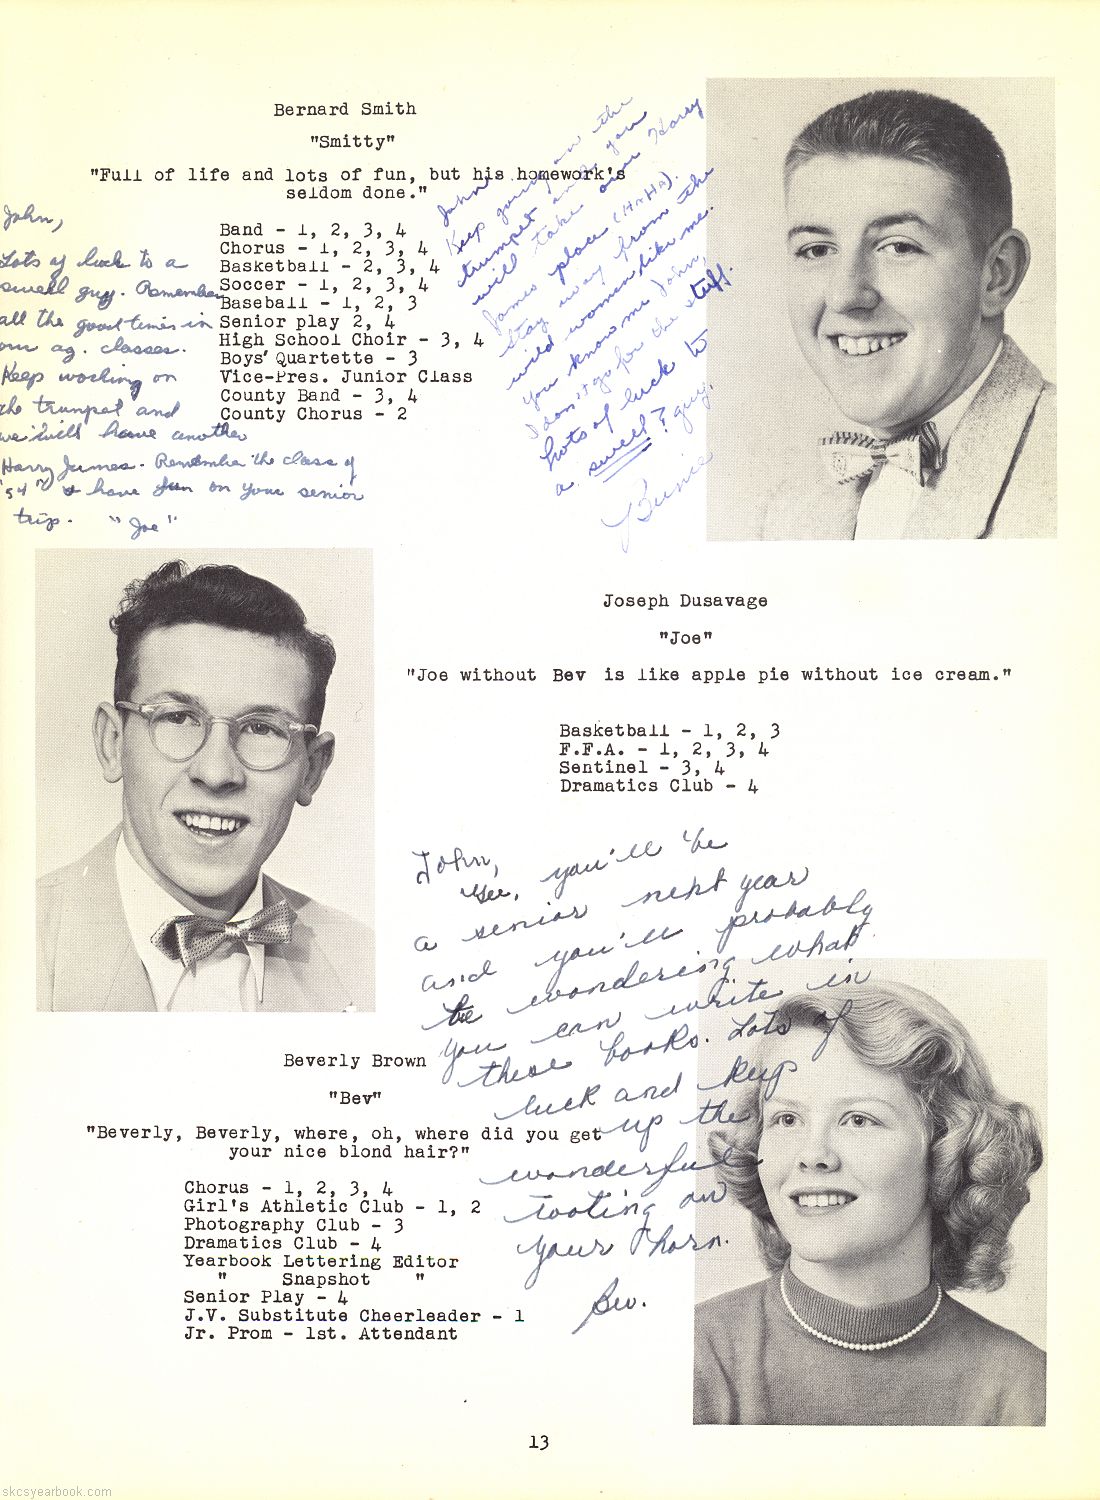 Bernard Smith
"Smitty"
"Full of life and lots of fun, but his homework's
seldom done."
Band - 1, 2, 3, 4
Chorus - 1, 2, 3, 4
Basketball - 2, 3, 4
Soccer - 1, 2, 3, 4
Baseball - 1, 2, 3
Senior play 2, 4
High School Choir - 3, 4
Boys' Quartette - 3
Vice-Pres. Junior Class
County Band - 3, 4
County Chorus - 2
John,
Lots of luck to a
swell guy. Remember
all the good times in
our ag. classes.
Keep working on
the trumpet and
we will have another
Harry James. Remember the class of
'54 & have fun on your senior
trip. "Joe"
John
Keep going on the
trumpet and you
will take over Harry
James place (HAHA).
Stay away from the
wild women like me.
You know me John,
I don't go for the stuff.
Lots of luck to
a swell? guy.
Joseph Dusavage
"Joe"
"Joe without Bev is like apple pie without ice cream."
Basketball - 1, 2, 3
F.F.A. - 1, 2, 3, 4
Sentinel - 3, 4
Dramatics Club - 4
John,
Gee, you'll be
a senior next year
and you'll probably
be wondering what
you can write in
these books. Lots of
luck and keep
up the
wonderful
tooting on
your horn.
Bev.
Beverly Brown
"Bev"
"Beverly, Beverly, where, oh, where did you get
your nice blond hair?"
Chorus - 1, 2, 3, 4
Girl's Athletic Club - 1, 2
Photography Club - 3
Dramatics Club - 4
Yearbook Lettering Editor
" Snapshot "
Senior Play - 4
J.V. Substitute Cheerleader - 1
Jr. Prom - 1st. Attendant
13
skcsyearbook.com